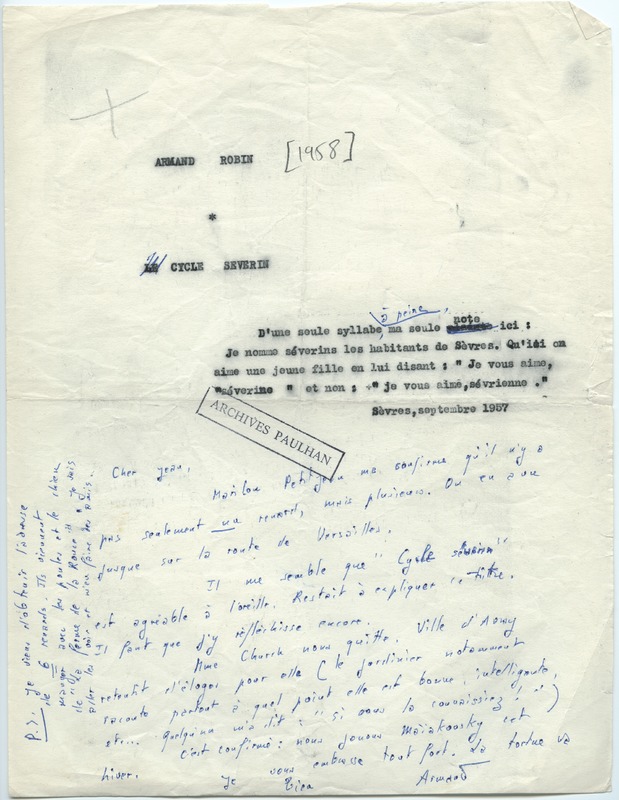 ARMAND ROBIN [1958]
*
LE CYCLE SEVERIN
à peine,
D'une seule syllabe, ma seule note ici :
Je nomme séverins les habitants de Sèvres. Qu'ici on
aime une jeune fille en lui disant : " Je vous aime,
"séverine " et non : " je vous aime, sévrienne ."
Sèvres, septembre 1957
ARCHIVES PAULHAN
Cher Jean,
Marilou Petitjean me confirme qu'il n'y a
pas seulement un renard, mais plusieurs. On en a vu
jusque sur la route de Versailles.
Il me semble que "Cycle séverin"
est agréable à l'oreille. Restait à expliquer le titre.
Il faut que j'y réfléchisse encore.
Mme Church nous quitte. Ville d'Avray
retentit d'éloges pour elle (le jardinier notamment
raconte partout à quel point elle est bonne, intelligente,
et... quelqu'un m'a dit : "si vous la connaissiez !")
C'est confirmé : nous jouons Maïakovsky cet
hiver. Je vous embrasse tout fort. La tortue va
bien
Armand
P.S. Je viens d'obtenir l'adresse
de 6 renards. Ils viennent
manger avec les poules et le chien
de la ferme de la Ronce. Je vais
aller les voir et m'en faire des amis.